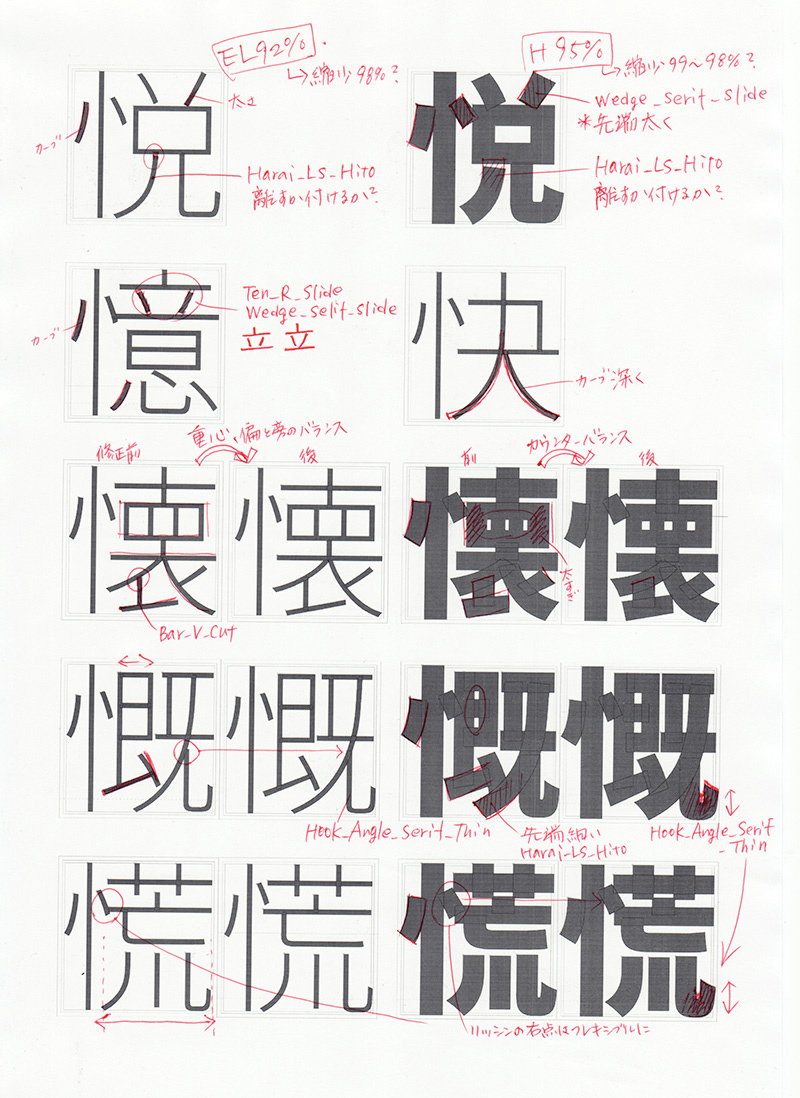 EL92%.
↳縮少98%?
H 95%
↳縮少99〜98%?
悦
カーブ
太さ
Harai_LS_Hito
離すか付けるか?
悦
Wedge_Serif_Slide
*先端太く
Harai_LS_Hito
離すか付けるか?
憶
カーブ
Ten_R_Slide
Wedge_Selif_Slide
立 立
快
カーブ深く
重心、偏と旁のバランス
修正前
後
懐
懐
Bar_V_Cut
カウンターバランス
前
後
懐
懐
太すぎ
慨
慨
Hook_Angle_Serif_Thin
慨
慨
先端細い
Harai_LS_Hito
Hook_Angle_Serif
_Thin
慌
慌
慌
慌
リッシンの右点はフレキシブルに